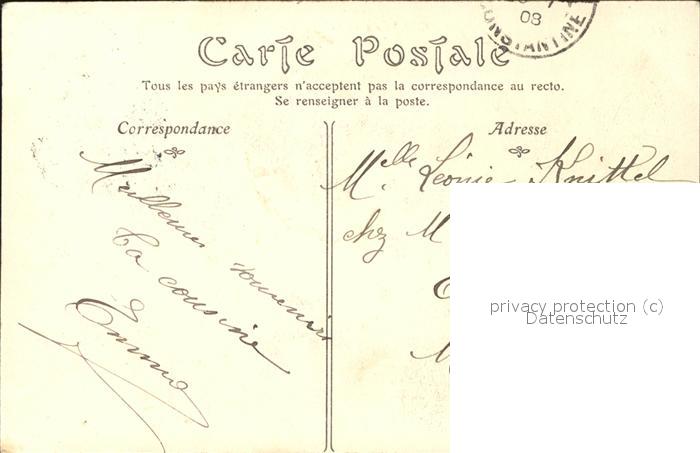 08
CONSTANTINE
Carte Postale
Tous les pays étrangers n'acceptent pas la correspondance au recto.
Se renseigner à la poste.
Correspondance
Meilleurs souvenirs
Ta cousine
Emma
Adresse
Melle Léonie Knittel
chez M
privacy protection (c)
Datenschutz